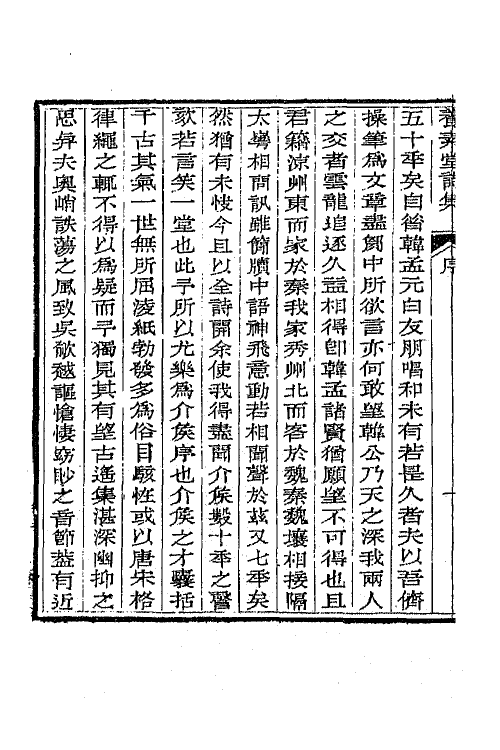 養素堂詩集 序 一
五十年矣自昔韓孟元白友朋唱和未有若是久者夫以吾儕
操筆為文章盡匈中所欲言亦何敢望韓公乃天之深我兩人
之交者雲龍追逐久益相得卽韓孟諸賢猶願望不可得也且
君籍涼州東而家於秦我家秀州北而客於魏秦魏壤相接隔
太華相問訊雖簡牘中語神飛意動若相聞聲於茲又七年矣
然猶有未快今且以全詩開余使我得盡聞介侯數十年之謦
欬若言笑一堂也此予所以尤樂為介侯序也介侯之才囊括
千古其氣一世無所屈凌紙勃發多為俗目駭怪或以唐宋格
律繩之輒不得以為疑而予獨見其有望古遙集湛深幽抑之
思舁夫奧峭詄蕩之風致吳歈越謳愴悽窈眇之音節蓋有近